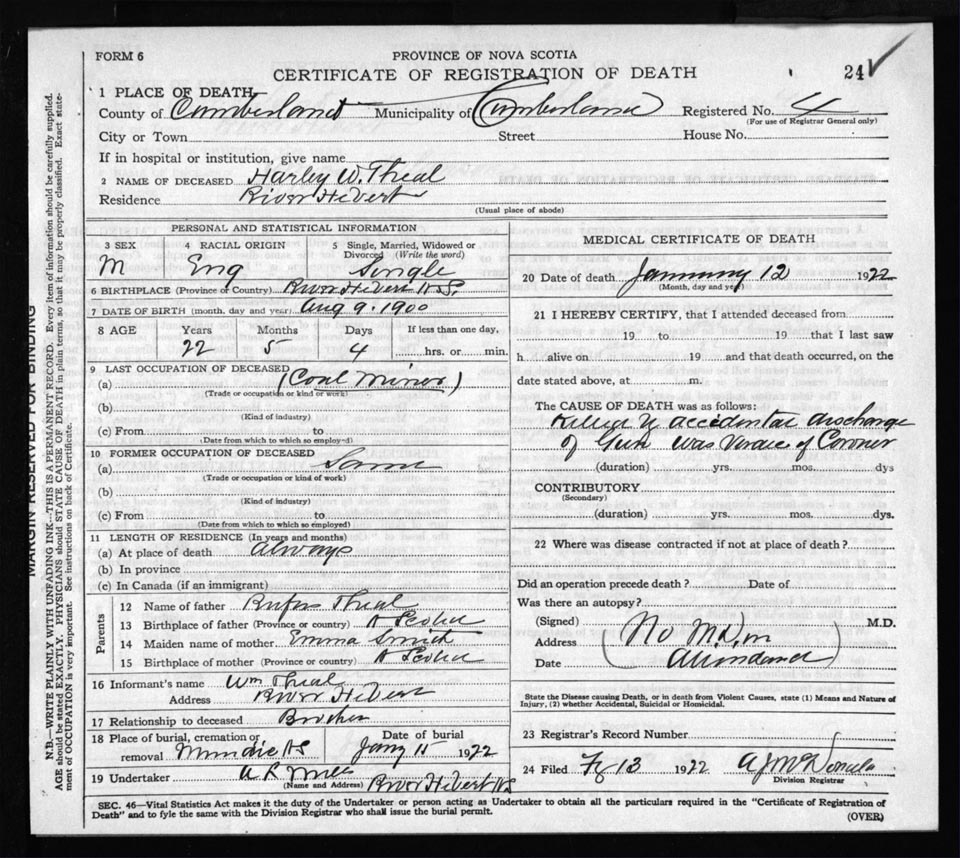 FORM 6
PROVINCE OF NOVA SCOTIA
CERTIFICATE OF REGISTRATION OF DEATH
24
1 PLACE OF DEATH
County of Cumberland Municipality of Cumberland Registered No. 4
(For use of Registrar General only)
City or Town Street House No.
If in hospital or institution, give name
2 NAME OF DECEASED Harley W. Theal
Residence River Hebert
(Usual place of abode)
PERSONAL AND STATISTICAL INFORMATION
3 SEX 4 RACIAL ORIGIN 5 Single, Married, Widowed or
Divorced (Write the word)
M Eng Single
6 BIRTHPLACE (Province or Country) River Hebert N.S.
7 DATE OF BIRTH (month, day and year) Aug 9. 1900
8 AGE Years Months Days If less than one day,
22 5 4 hrs. or min.
9 LAST OCCUPATION OF DECEASED
(a) (Coal Miner)
(Trade or occupation or kind of work)
(b)
(Kind of industry)
(c) From to
(Date from which to which so employed)
10 FORMER OCCUPATION OF DECEASED
(a) Same
(Trade or occupation or kind of work)
(b)
(Kind of industry)
(c) From to
(Date from which to which so employed)
11 LENGTH OF RESIDENCE (In years and months)
(a) At place of death always
(b) In province
(c) In Canada (if an immigrant)
Parents
12 Name of father Rufus Theal
13 Birthplace of father (Province or country) N Scotia
14 Maiden name of mother Emma Smith
15 Birthplace of mother (Province or country) N Scotia
16 Informant's name Wm Theal
Address River Hebert
17 Relationship to deceased Brother
18 Place of burial, cremation or Date of burial
removal Minudie NS Jany 15 1922
19 Undertaker A R Mills
(Name and Address) River Hebert NS
MEDICAL CERTIFICATE OF DEATH
20 Date of death January 12 1922
(Month, day and year)
21 I HEREBY CERTIFY, that I attended deceased from
19 to 19 that I last saw
h alive on 19 and that death occurred, on the
date stated above, at m.
The CAUSE OF DEATH was as follows:
Killed by accidental discharge
of Gun was verdict of Coroner
(duration) yrs. mos. dys
CONTRIBUTORY
(Secondary)
(duration) yrs. mos. dys.
22 Where was disease contracted if not at place of death?
Did an operation precede death? Date of
Was there an autopsy?
(Signed) M.D.
Address (No M.D. in
Date Attendance)
State the Disease causing Death, or in death from Violent Causes, state (1) Means and Nature of
Injury, (2) whether Accidental, Suicidal or Homicidal.
23 Registrar's Record Number
24 Filed 13 1922
Division Registrar
SEC. 46—Vital Statistics Act makes it the duty of the Undertaker or person acting as Undertaker to obtain all the particulars required in the "Certificate of Registration of
Death" and to fyle the same with the Division Registrar who shall issue the burial permit.
(OVER)
MARGIN RESERVED FOR BINDING
N.B.—WRITE PLAINLY WITH UNFADING INK—THIS IS A PERMANENT RECORD. Every item of information should be carefully supplied.
AGE should be stated EXACTLY. PHYSICIANS should STATE CAUSE OF DEATH in plain terms, so that it may be properly classified. Exact state-
ment of OCCUPATION is very important. See instructions on back of Certificate.